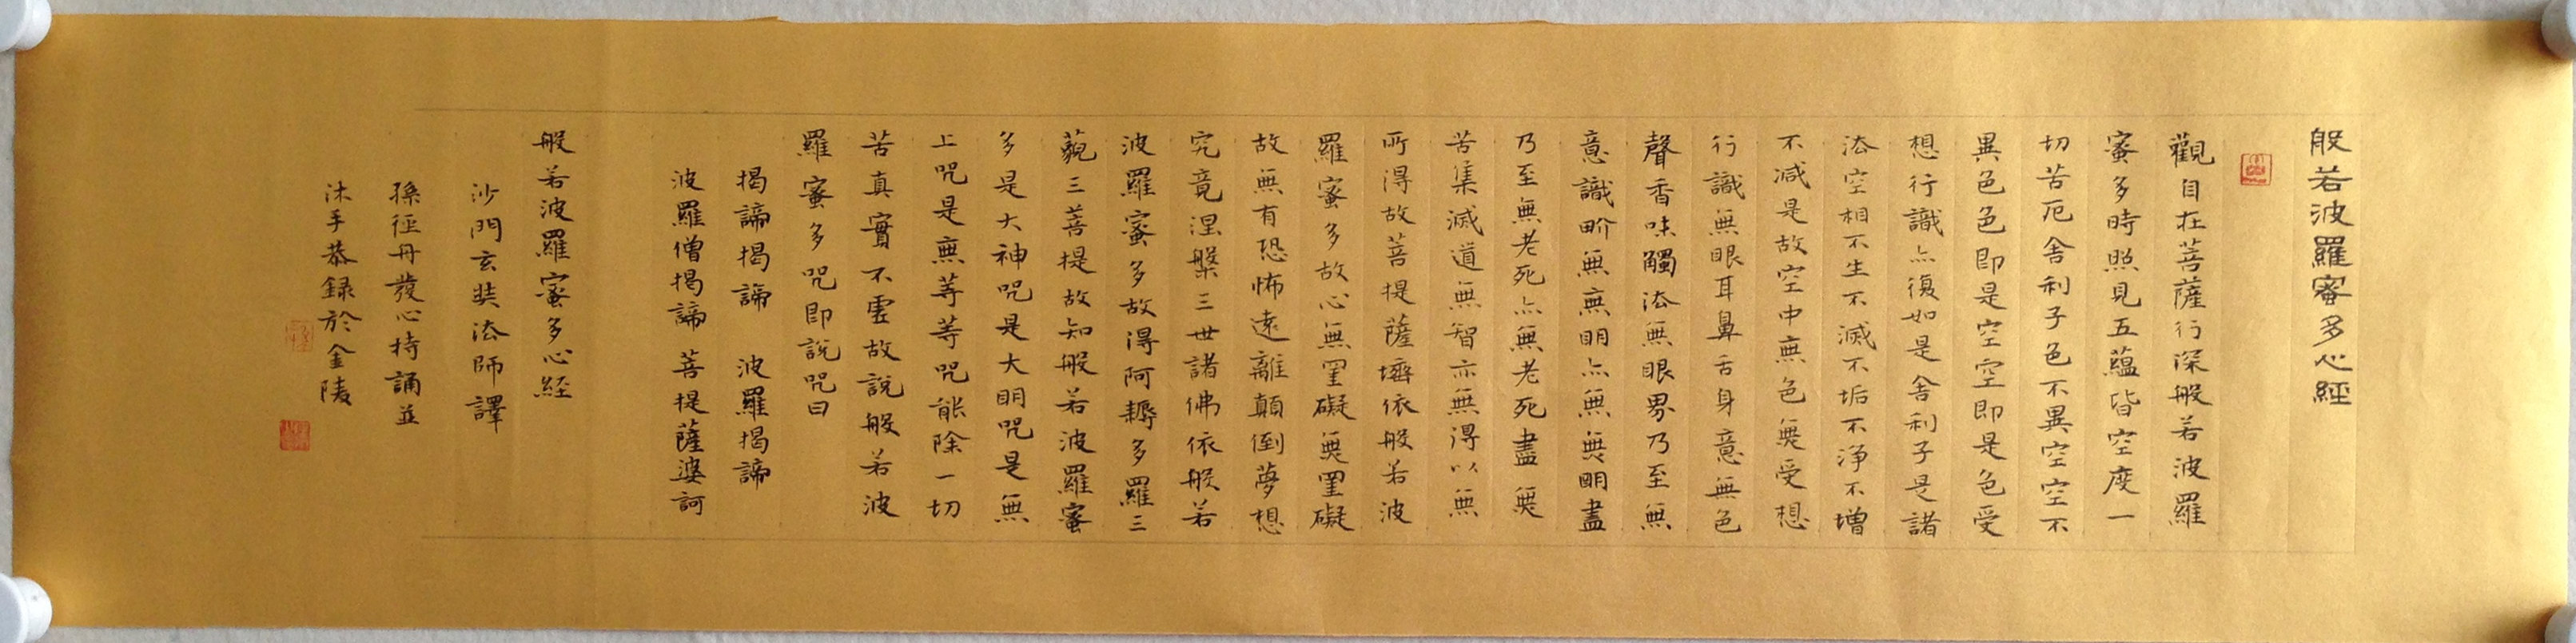 般若波羅蜜多心經
觀自在菩薩行深般若波羅
蜜多時照見五蘊皆空度一
切苦厄舍利子色不異空空不
異色色即是空空即是色受
想行識亦復如是舍利子是諸
法空相不生不滅不垢不淨不增
不減是故空中無色無受想
行識無眼耳鼻舌身意無色
聲香味觸法無眼界乃至無
意識界無無明亦無無明盡
乃至無老死亦無老死盡無
苦集滅道無智亦無得以無
所得故菩提薩埵依般若波
羅蜜多故心無罣礙無罣礙
故無有恐怖遠離顛倒夢想
究竟涅槃三世諸佛依般若
波羅蜜多故得阿耨多羅三
藐三菩提故知般若波羅蜜
多是大神咒是大明咒是無
上咒是無等等咒能除一切
苦真實不虛故說般若波
羅蜜多咒即說咒曰
揭諦揭諦 波羅揭諦
波羅僧揭諦 菩提薩婆訶
般若波羅蜜多心經
沙門玄奘法師譯
孫徑丹發心持誦並
沐手恭録於金陵